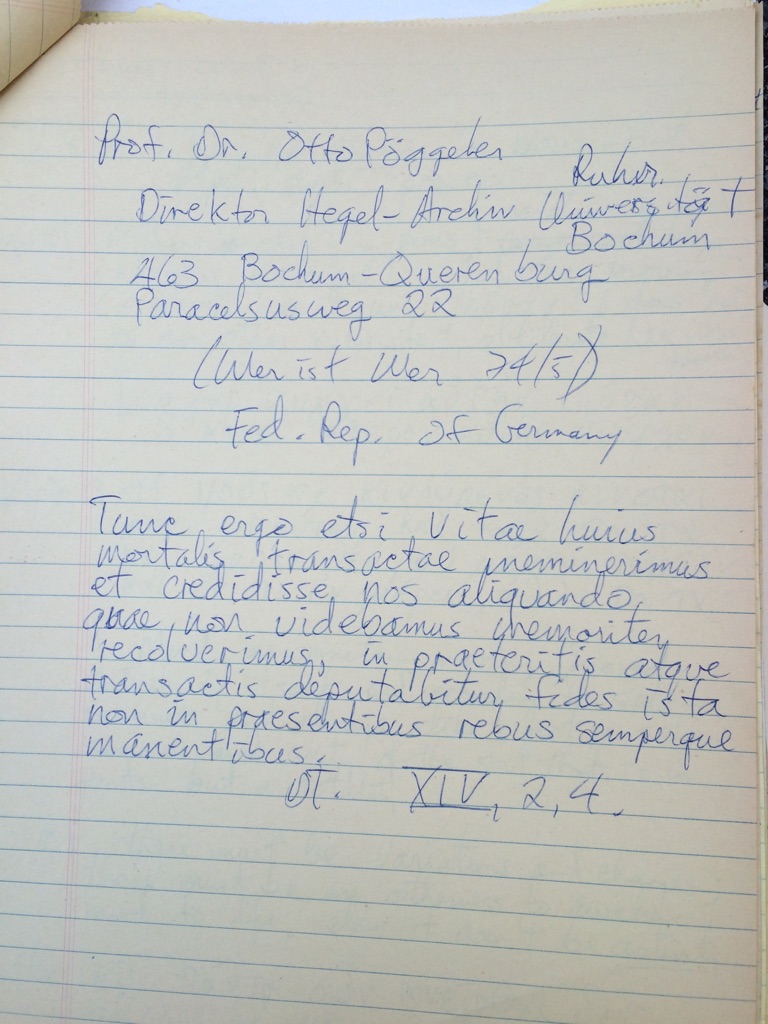 Prof. Dr. Otto Pöggeler
Ruhr.
Direktor Hegel-Archiv Universität
Bochum
463 Bochum-Querenburg
Paracelsusweg 22
(Wer ist Wer 74/5)
Fed. Rep. of Germany
Tunc ergo etsi vitae huius
mortalis transactae meminerimus
et credidisse nos aliquando,
quae non videbamus memoriter
recoluerimus, in praeteritis atque
transactis deputabitur fides ista
non in praesentibus rebus semperque
manentibus.
DT. XIV, 2, 4.